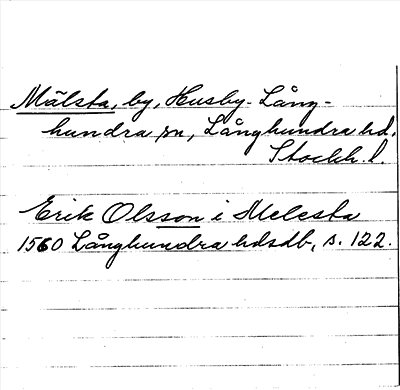 Mälsta, by, Husby-Lång-
hundra sn, Långhundra hd.
Stockh. l.
Erik Olsson i Melesta
1560 Långhundra hdsdb, s. 122.